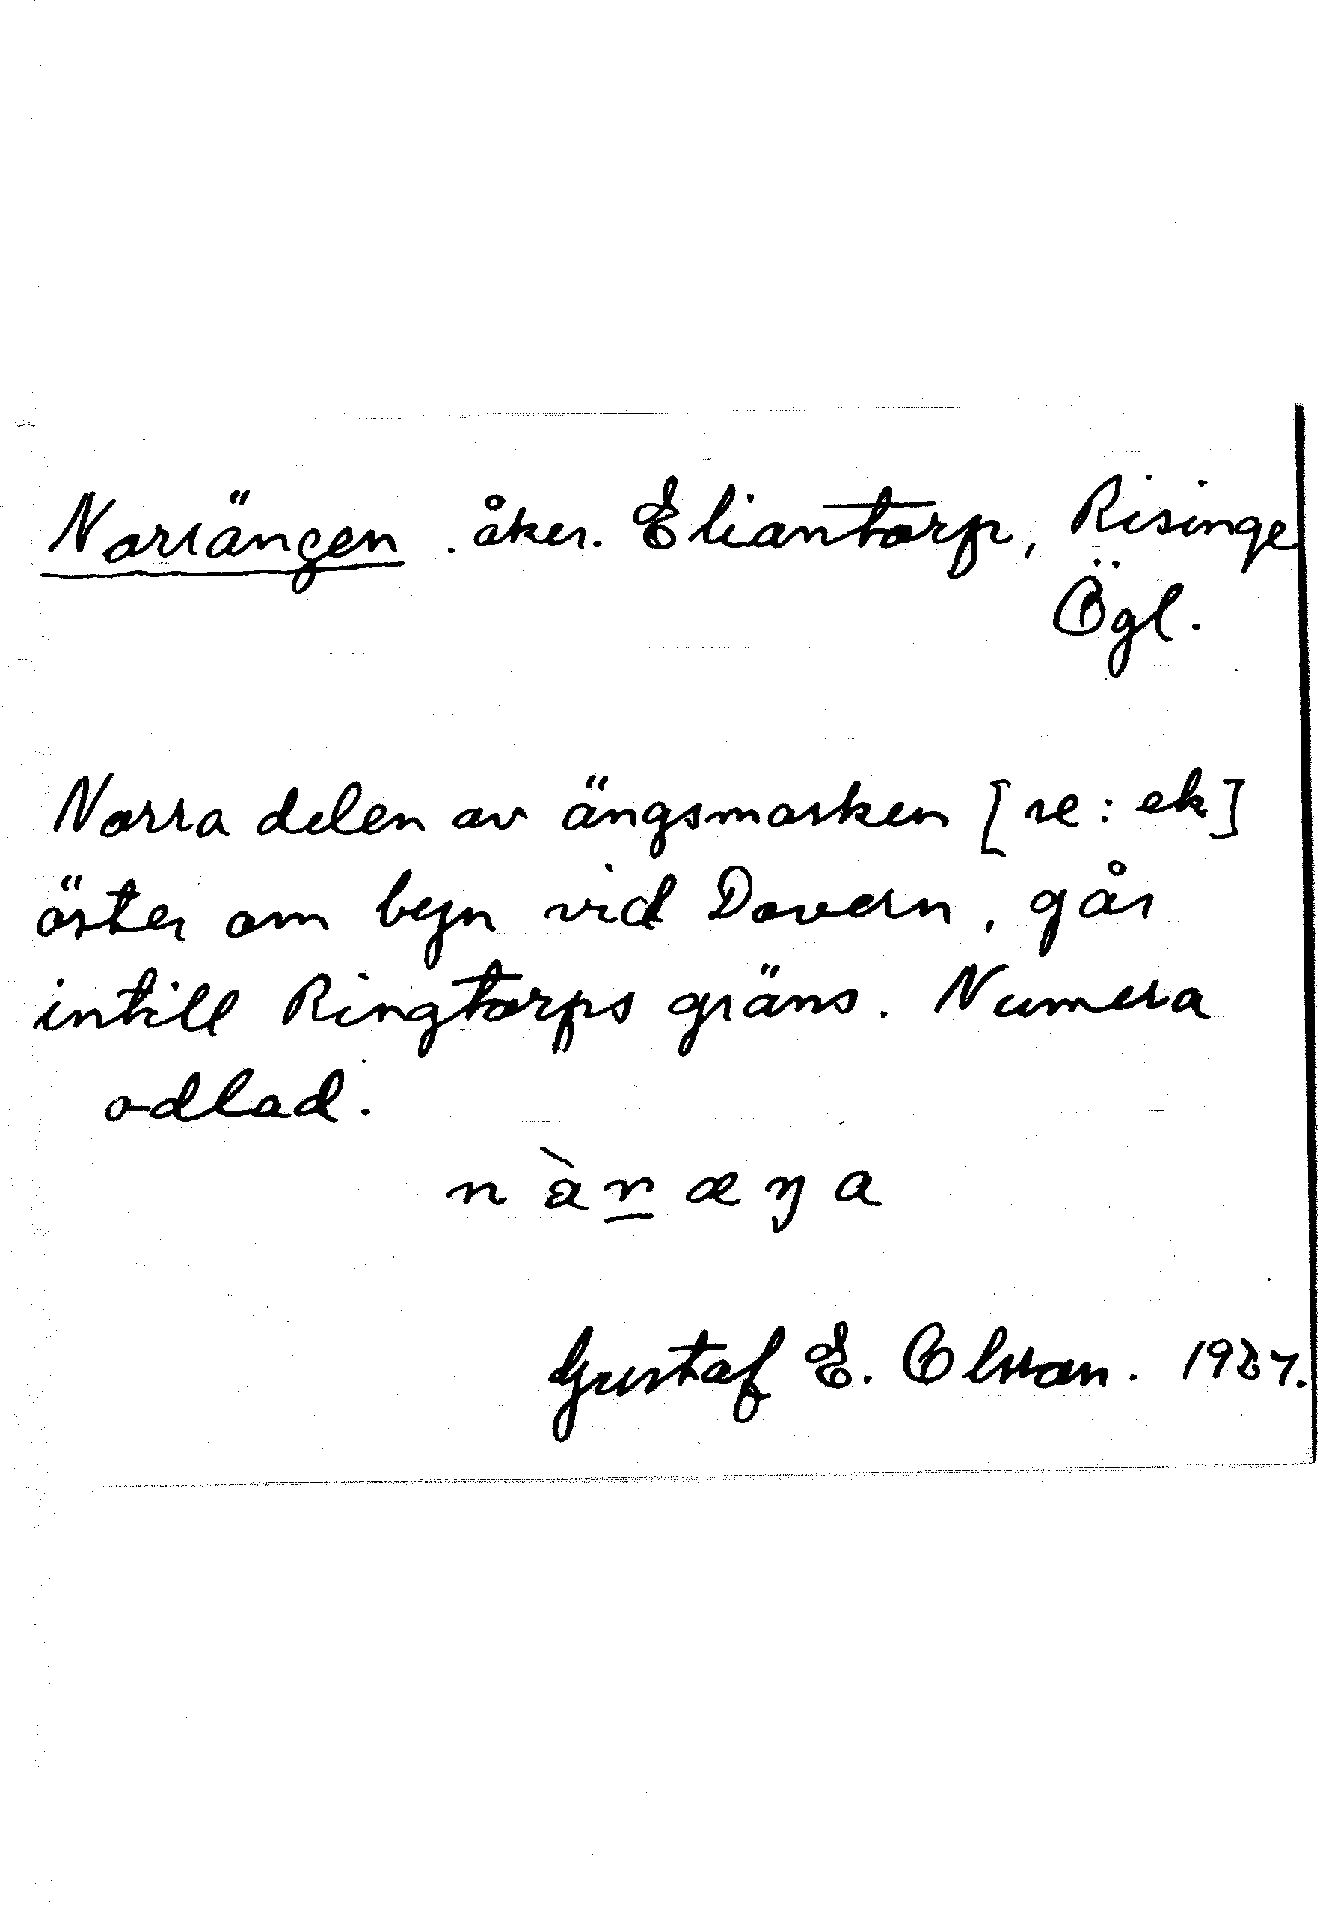 Norrängen . åker. Eliantorp, Risinge
Ögl.
Norra delen av ängsmarken [se: ek]
öster om byn vid Dovern, går
intill Ringtorps gräns. Numera
odlad.
nàr̲æŋa
Gustaf E. Olsson. 1927.